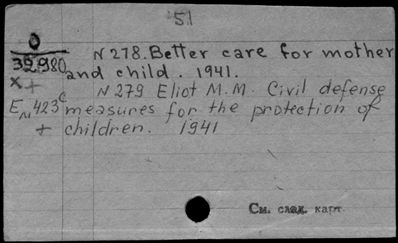 51
O
39980
N 278. Better care for mother
x + and child. 1941.
N 279 Eliot M. M. Civil defense
Eм 423c measures for the protection of
+ children. 1941
См. след. карт.